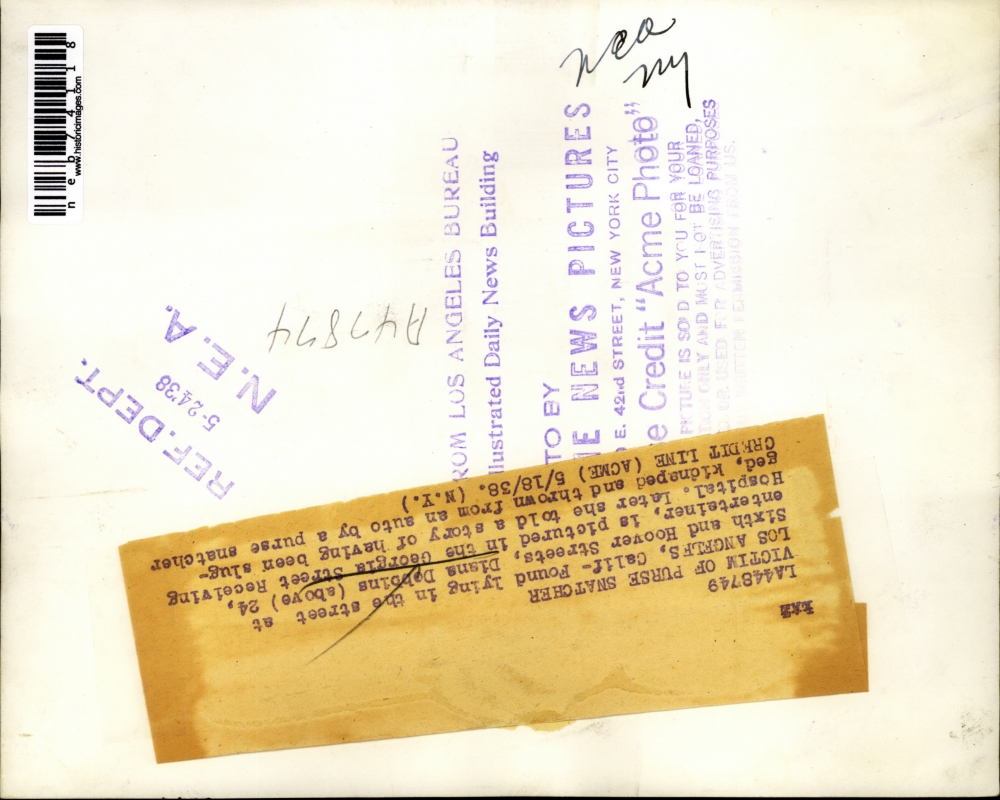 neb74118
www.historicimages.com
nea
ny
ROM LOS ANGELES BUREAU
llustrated Daily News Building
TO BY
E NEWS PICTURES
E. 42nd STREET, NEW YORK CITY
e Credit "Acme Photo"
PICTURE IS SOLD TO YOU FOR YOUR
ION ONLY AND MUST NOT BE LOANED,
D OR USED FOR ADVERTISING PURPOSES
WRITTEN PERMISSION FROM US.
A47874
REF. DEPT.
5-24'38
N. E. A.
LA448749
VICTIM OF PURSE SNATCHER
LOS ANGELES, Calif- Found lying in the street at
Sixth and Hoover Streets, Diana Dobbins (above) 24,
entertainer, is pictured in the Georgia Street Receiving
Hospital. Later she told a story of having been slug-
ged, kidnaped and thrown from an auto by a purse snatcher
CREDIT LINE (ACME) 5/18/38. (N.Y.)